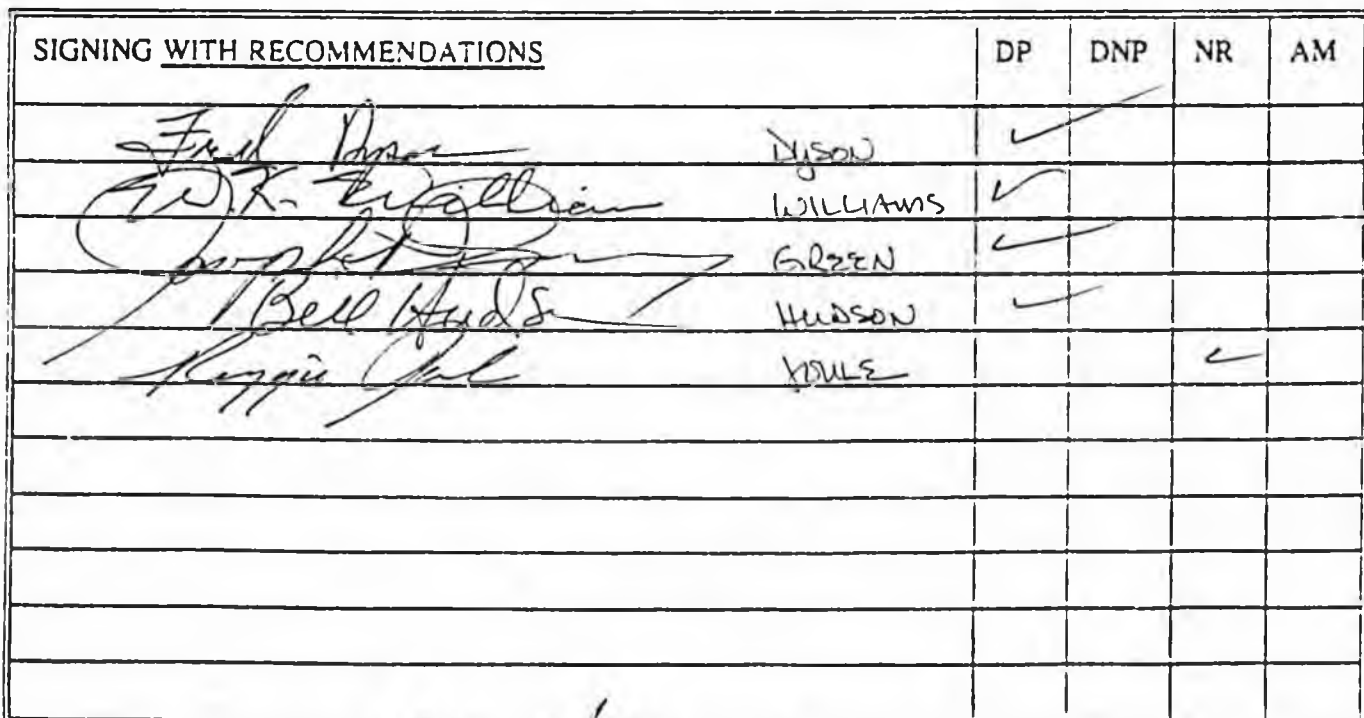 SIGNING WITH RECOMMENDATIONS DP DNP NR AM
Fred Dyson DYSON ✓
W.K. William WILLIAMS ✓
GREEN ✓
Bill Hudson HUDSON ✓
Reggie Joule JOULE ✓